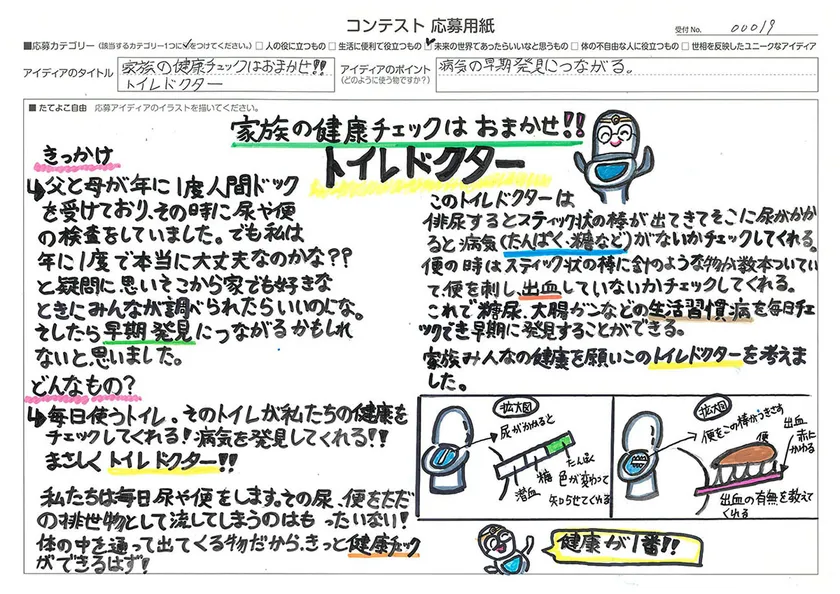 コンテスト 応募用紙
受付No. 00019
■応募カテゴリー（該当するカテゴリー1つに✓をつけてください。） □ 人の役に立つもの □ 生活に便利で役立つもの ☑ 未来の世界であったらいいなと思うもの □ 体の不自由な人に役立つもの □ 世相を反映したユニークなアイディア
アイディアのタイトル
家族の健康チェックはおまかせ!!
トイレドクター
アイディアのポイント
（どのように使う物ですか？）
病気の早期発見につながる。
■ たてよこ自由 応募アイディアのイラストを描いてください。
家族の健康チェックは おまかせ!!
トイレドクター
きっかけ
↳父と母が年に1度人間ドック
を受けており、その時に尿や便
の検査をしていました。でも私は
年に1度で本当に大丈夫なのかな??
と疑問に思いそこから家でも好きな
ときにみんなが調べられたらいいのにな。
そしたら早期発見につながるかもしれ
ないと、思いました。
どんなもの?
↳毎日使うトイレ。そのトイレが私たちの健康を
チェックしてくれる!病気を発見してくれる!!
まさしくトイレドクター!!
私たちは毎日尿や便をします。その尿、便をただ
の排世物として流してしまうのはもったいない!
体の中を通って出てくる物だから、きっと健康チェック
ができるはず!
このトイレドクターは
俳尿するとスティック状の棒が出てきてそこに尿がかか
ると病気(たんぱく、糖など)がないかチェックしてくれる。
便の時はスティック状の棒に針のような物が数本ついてい
て、便を刺し、出血していないかチェックしてくれる。
これで糖尿、大腸ガンなどの生活習慣病を毎日チェ
ックでき早期に発見することができる。
家族みんなの健康を願いこのトイレドクターを考えま
した。
拡大図
尿がかかると
たんぱく
糖
潜血
色が変わって
知らせてくれる
拡大図
便をこの棒がうきさす
便
出血
赤に
かわる
出血の有無を教えて
くれる
健康が1番!!